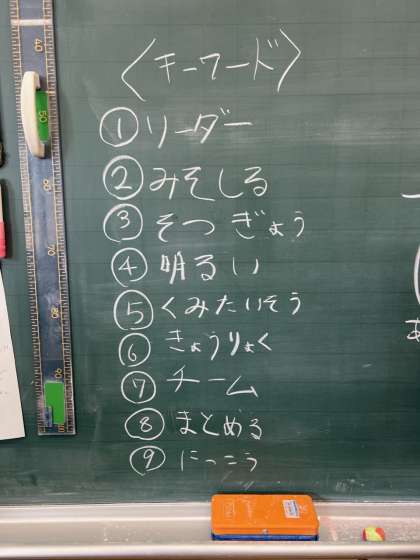 〈キーワード〉
①リーダー
②みそしる
③そつぎょう
④明るい
⑤くみたいそう
⑥きょうりょく
⑦チーム
⑧まとめる
⑨にっこう
40
50
60
70
80
90
あ